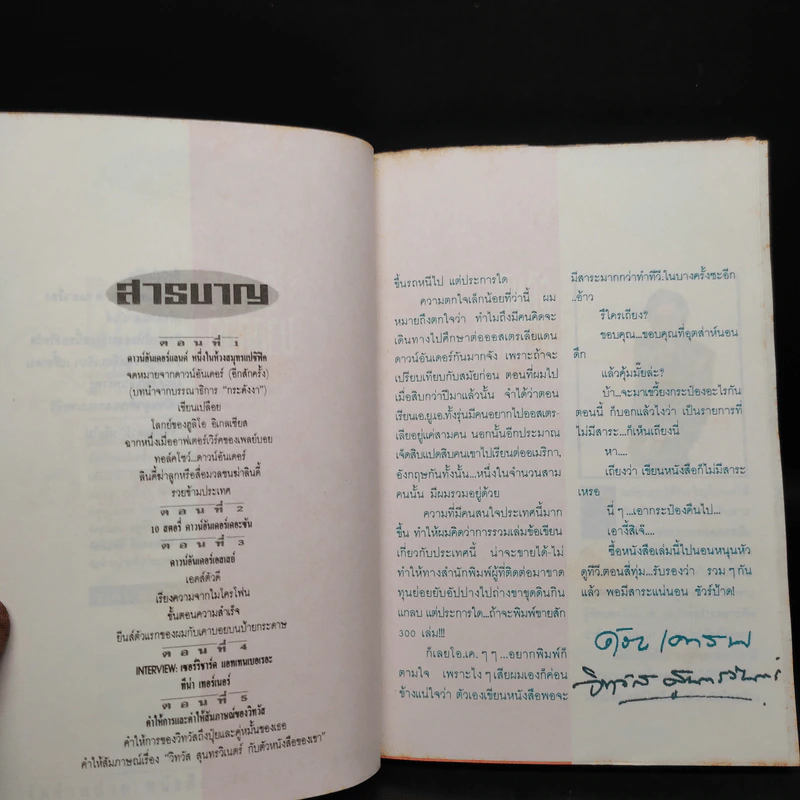 สารบาญ
ตอนที่ 1
ดาวน์อันเดอร์แลนด์ หนึ่งในห้วงสมุทรแปซิฟิค
จดหมายจากดาวน์อันเดอร์ (อีกสักครั้ง)
(บทนำจากบรรณาธิการ "กระดังงา")
เขียนเปลือย
โลกย์ของฮูลิโอ อิเกลเซียส
ฉากหนึ่งเมื่ออาฟเตอร์เวิร์คของเพลย์บอย
ทอล์คโชว์...ดาวน์อันเดอร์
ลินดี้ฆ่าลูกหรือสื่อมวลชนฆ่าลินดี้
รวยข้ามประเทศ
ตอนที่ 2
10 สตอรี่ ดาวน์อันเดอร์เดอะซัน
ตอนที่ 3
ดาวน์อันเดอร์เอสเสย์
เอดส์ตัวดี
เรียงความจากไมโครโฟน
ขั้นตอนความสำเร็จ
ยีนส์ตัวแรกของผมกับเคาบอยบนป้ายกระดาษ
ตอนที่ 4
INTERVIEW: เซอร์ริชาร์ด แอทเทนเบอเรอะ
ทีน่า เทอร์เนอร์
ตอนที่ 5
คำให้การและคำให้สัมภาษณ์ของวิทวัส
คำให้การของวิทวัสถึงปุ๋ยและคู่หมั้นของเธอ
คำให้สัมภาษณ์เรื่อง "วิทวัส สุนทรวิเนตร์ กับตัวหนังสือของเขา"
ขึ้นรถหนีไป แต่ประการใด
ความตกใจเล็กน้อยที่ว่านี้ ผม
หมายถึงตกใจว่า ทำไมถึงมีคนคิดจะ
เดินทางไปศึกษาต่อออสเตรเลียแดน
ดาวน์อันเดอร์กันมากจัง เพราะถ้าจะ
เปรียบเทียบกับสมัยก่อน ตอนที่ผมไป
เมื่อสิบกว่าปีมาแล้วนั้น จำได้ว่าตอน
เรียนเอ.ยู.เอ.ทั้งรุ่นมีคนอยากไปออสเตร-
เลียอยู่แค่สามคน นอกนั้นอีกประมาณ
เจ็ดสิบแปดสิบคนเขาไปเรียนต่ออเมริกา,
อังกฤษกันทั้งนั้น...หนึ่งในจำนวนสาม
คนนั้น มีผมรวมอยู่ด้วย
ความที่มีคนสนใจประเทศนี้มาก
ขึ้น ทำให้ผมคิดว่าการรวมเล่มข้อเขียน
เกี่ยวกับประเทศนี้ น่าจะขายได้-ไม่
ทำให้ทางสำนักพิมพ์ผู้ที่ติดต่อมาขาด
ทุนย่อยยับอัปปางไปถ่างขาขุดดินกิน
แกลบ แต่ประการใด...ถ้าจะพิมพ์ขายสัก
300 เล่ม!!!
ก็เลยโอ.เค.ๆๆ...อยากพิมพ์ก็
ตามใจ เพราะไงๆเสียผมเองก็ค่อน
ข้างแน่ใจว่า ตัวเองเขียนหนังสือพอจะ
มีสาระมากกว่าทำทีวี.ในบางครั้งซะอีก
..อ้าว
รึใครเถียง?
ขอบคุณ...ขอบคุณที่อุตส่าห์นอน
ดึก
แล้วคุ้มมั๊ยล่ะ?
บ๊า..จะมาเขวี้ยงกระป๋องอะไรกัน
ตอนนี้ ก็บอกแล้วไงว่า เป็นรายการที่
ไม่มีสาระ...ก็เห็นเถียงนี่
หา....
เถียงว่า เขียนหนังสือก็ไม่มีสาระ
เหรอ
นี่ๆ...เอากระป๋องคืนไป...
เอางี้สิเจ๊....
ซื้อหนังสือเล่มนี้ไปนอนหนุนหัว
ดูทีวี.ตอนสี่ทุ่ม...รับรองว่า รวมๆกัน
แล้ว พอมีสาระแน่นอน ชัวร์ป้าด!
ด้วยเคารพ
วิทวัส สุนทรวิเนตร์